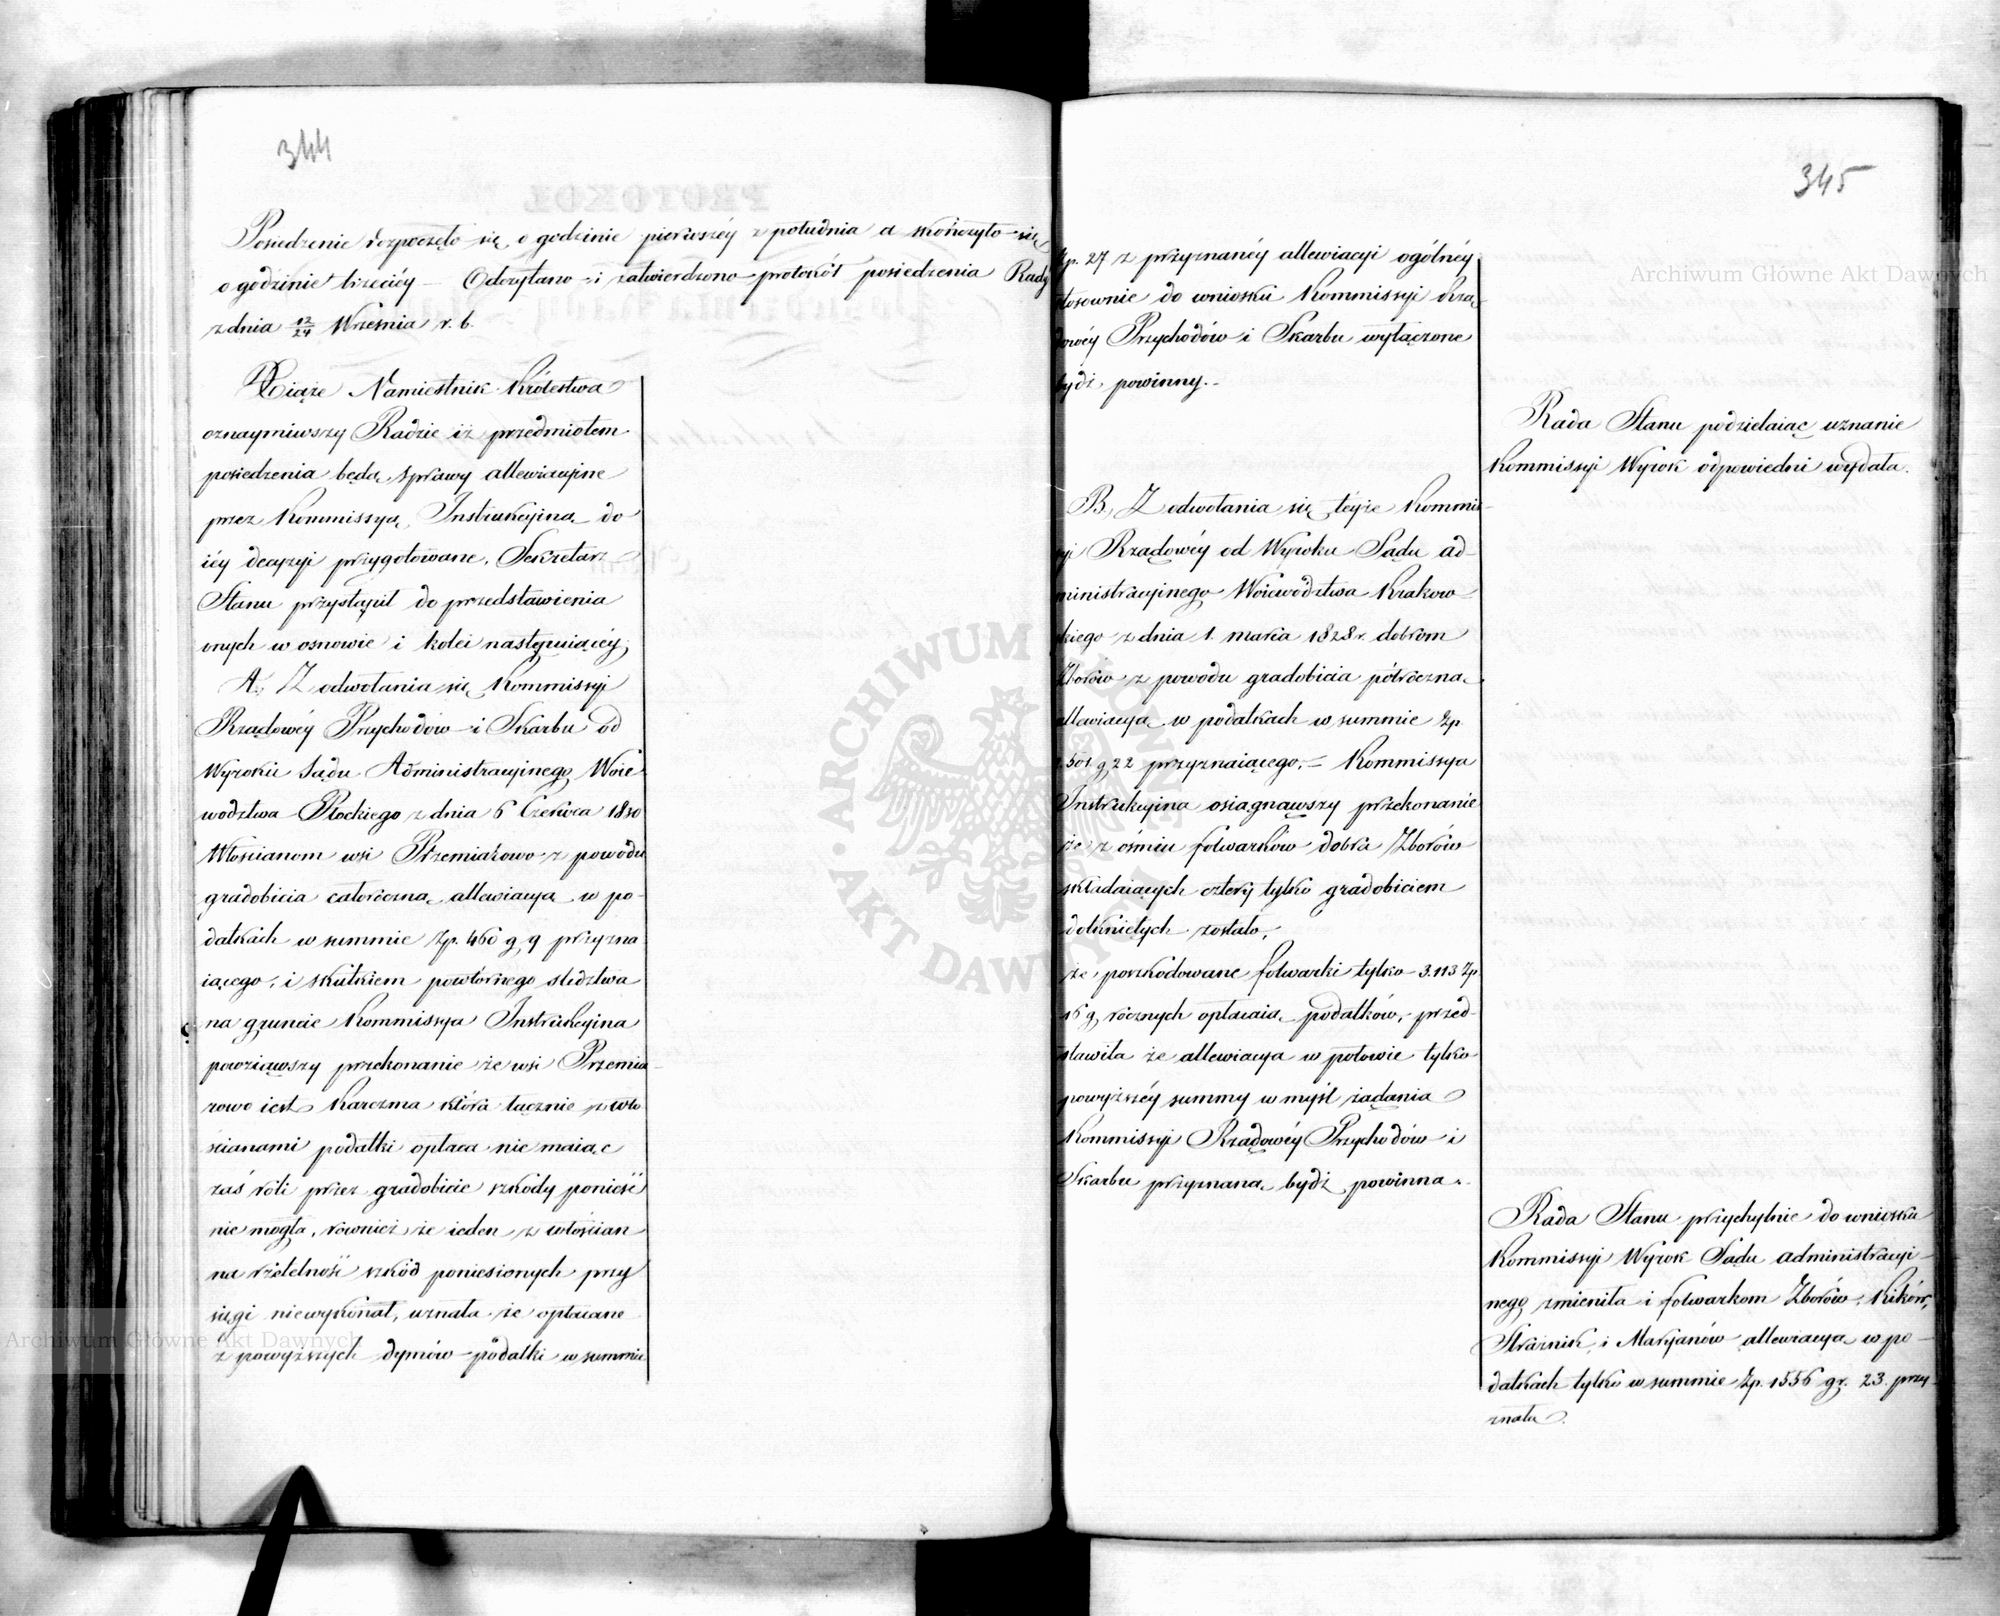 344
Posiedzenie rozpoczęło się o godzinie pierwszéy z południa a skończyło się
o godzinie trzeciéy — Odczytano i zatwierdzono protokół posiedzenia Rady
z dnia 12/24 Września r. b.
Xiąże Namiestnik Królestwa
oznaymiwszy Radzie iż przedmiotem
posiedzenia będą sprawy allewiacyine
przez Kommissyą Instrukcyiną do
iéy decyzyi przygotowane, Sekretarz
Stanu przystąpił do przedstawienia
onych w osnowie i kolei następuiącéy;
A., Z odwołania się Kommissyi
Rządowéy Przychodów i Skarbu od
Wyroku Sądu Administracyinego Woie
wództwa Płockiego z dnia 6 Czerwca 1830
Włościanom wsi Przemiarowo z powodu
gradobicia całoroczną allewiacyą w po-
datkach w summie Zp. 460 g 9 przyzna
iącego, i skutkiem powtórnego śledztwa
na gruncie Kommissya Instrukcyina
powziąwszy przekonanie że wsi Przemia-
rowo iest Karczma która łącznie z wło
ścianami podatki opłaca nie maiąc
zaś roli przez gradobicie szkody ponieść
nie mogła, również że ieden z włościan
na rzetelność szkód poniesionych przy
sięgi niewykonał, uznała że opłacane
z powyższych dymów podatki w summie
345
Zp. 27 z przyznanéy allewiacyi ogólnéy
stosownie do wniosku Kommissyi Rzą-
dowéy Przychodów i Skarbu wyłączone
bydź powinny.-
Rada Stanu podzielaiąc uznanie
Kommissyi Wyrok odpowiedni wydała.
B., Z odwołania się téyże Kommis-
syi Rządowéy od Wyroku Sądu ad-
ministracyinego Woiewództwa Krakow-
skiego z dnia 1. marca 1828 r. dobrom
Zborów z powodu gradobicia półroczną
allewiacyą w podatkach w summie Zp
501 g 22 przyznaiącego. — Kommissya
Instrukcyina osiągnąwszy przekonanie
że z ośmiu folwarków dobra Zborów
składaiących cztery tylko gradobiciem
dotkniętych zostało,
że poszkodowane folwarki tylko 3.113 Zp.
16 g rocznych opłacaią podatków, przed-
stawiła że allewiacya w połowie tylko
powyższéy summy w myśl żądania
Kommissyi Rządowéy Przychodów i
Skarbu przyznaną bydź powinna.
Rada Stanu przychylnie do wniosku
Kommissyi Wyrok Sądu administracyi-
nego zmieniła i folwarkom Zborów, Kików,
Strażnik, i Maryanów allewiacyą w po-
datkach tylko w summie Zp. 1556 gr. 23. przy-
znała.
Archiwum Główne Akt Dawnych
Archiwum Główne Akt Dawnych